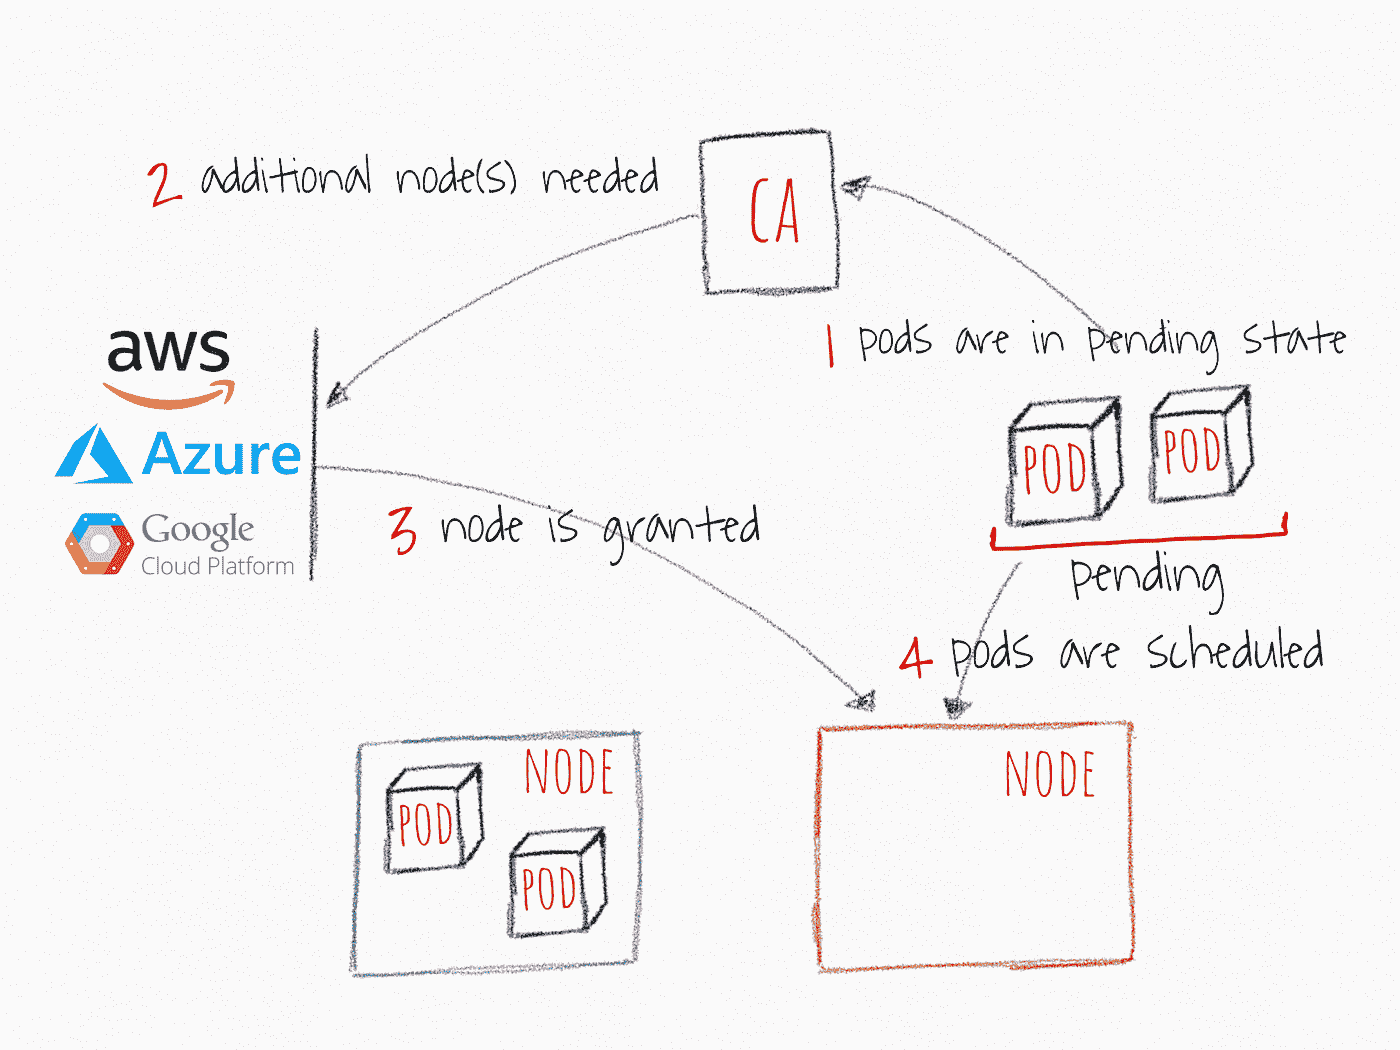 2 additional node(s) needed
CA
1 pods are in pending state
aws
Azure
Google
Cloud Platform
POD
POD
3 node is granted
pending
4 pods are scheduled
NODE
POD
POD
NODE